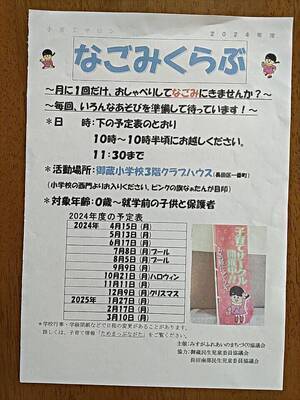 子育てサロン 2024年度
なごみくらぶ
～月に1回だけ、おしゃべりしてなごみにきませんか？～
～毎回、いろんなあそびを準備して待っています！～
＊日 時:下の予定表のとおり
10時～10時半頃にお越しください。
11:30まで
＊活動場所:御蔵小学校3階クラブハウス(長田区一番町)
(小学校の西門よりお入りください。ピンクの旗なぁたんが目印)
＊対象年齢:0歳～就学前の子供と保護者
2024年度の予定表
2024年 4月15日(月)
5月13日(月)
6月17日(月)
7月8日(月)プール
8月5日(月)プール
9月9日(月)
10月21日(月)ハロウィン
11月11日(月)
12月9日(月)クリスマス
2025年 1月27日(月)
2月17日(月)
3月10日(月)
子育てサークル
開催中
＊学校行事・学級閉鎖などで日程の変更があることがあります。
詳しくは、子育て情報「ためまっぷながた」をご覧ください。
主催:みすがふれあいのまちづくり協議会
協力:御蔵民生児童委員協議会
長田南部民生児童委員協議会